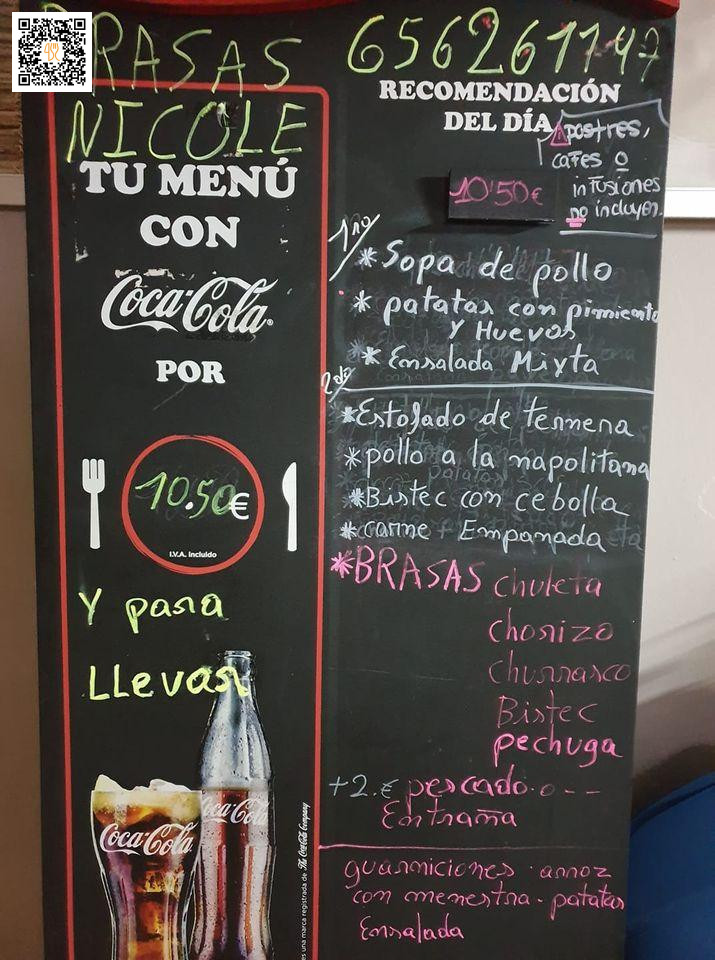 BRASAS
NICOLE
TU MENÚ
CON
Coca-Cola
POR
10.50€
I.V.A. incluido
Y para
LLevar
Coca-Cola
Coca-Cola
es una marca registrada de The Coca-Cola Company
656261147
RECOMENDACIÓN
DEL DÍA
postres,
cafes o
infusiones
no incluyen.
10'50€
1ro
*Sopa de pollo
* patatas con pimiento
Y Huevos
* Ensalada Mixta
2do
*Estofado de ternera
*pollo a la napolitana
*Bistec con cebolla
*carne + Empanada
*BRASAS chuleta
chorizo
churrasco
Bistec
pechuga
+2.€ pescado.o --
Entraña
guarniciones - arroz
con menestra - patatas
Ensalada